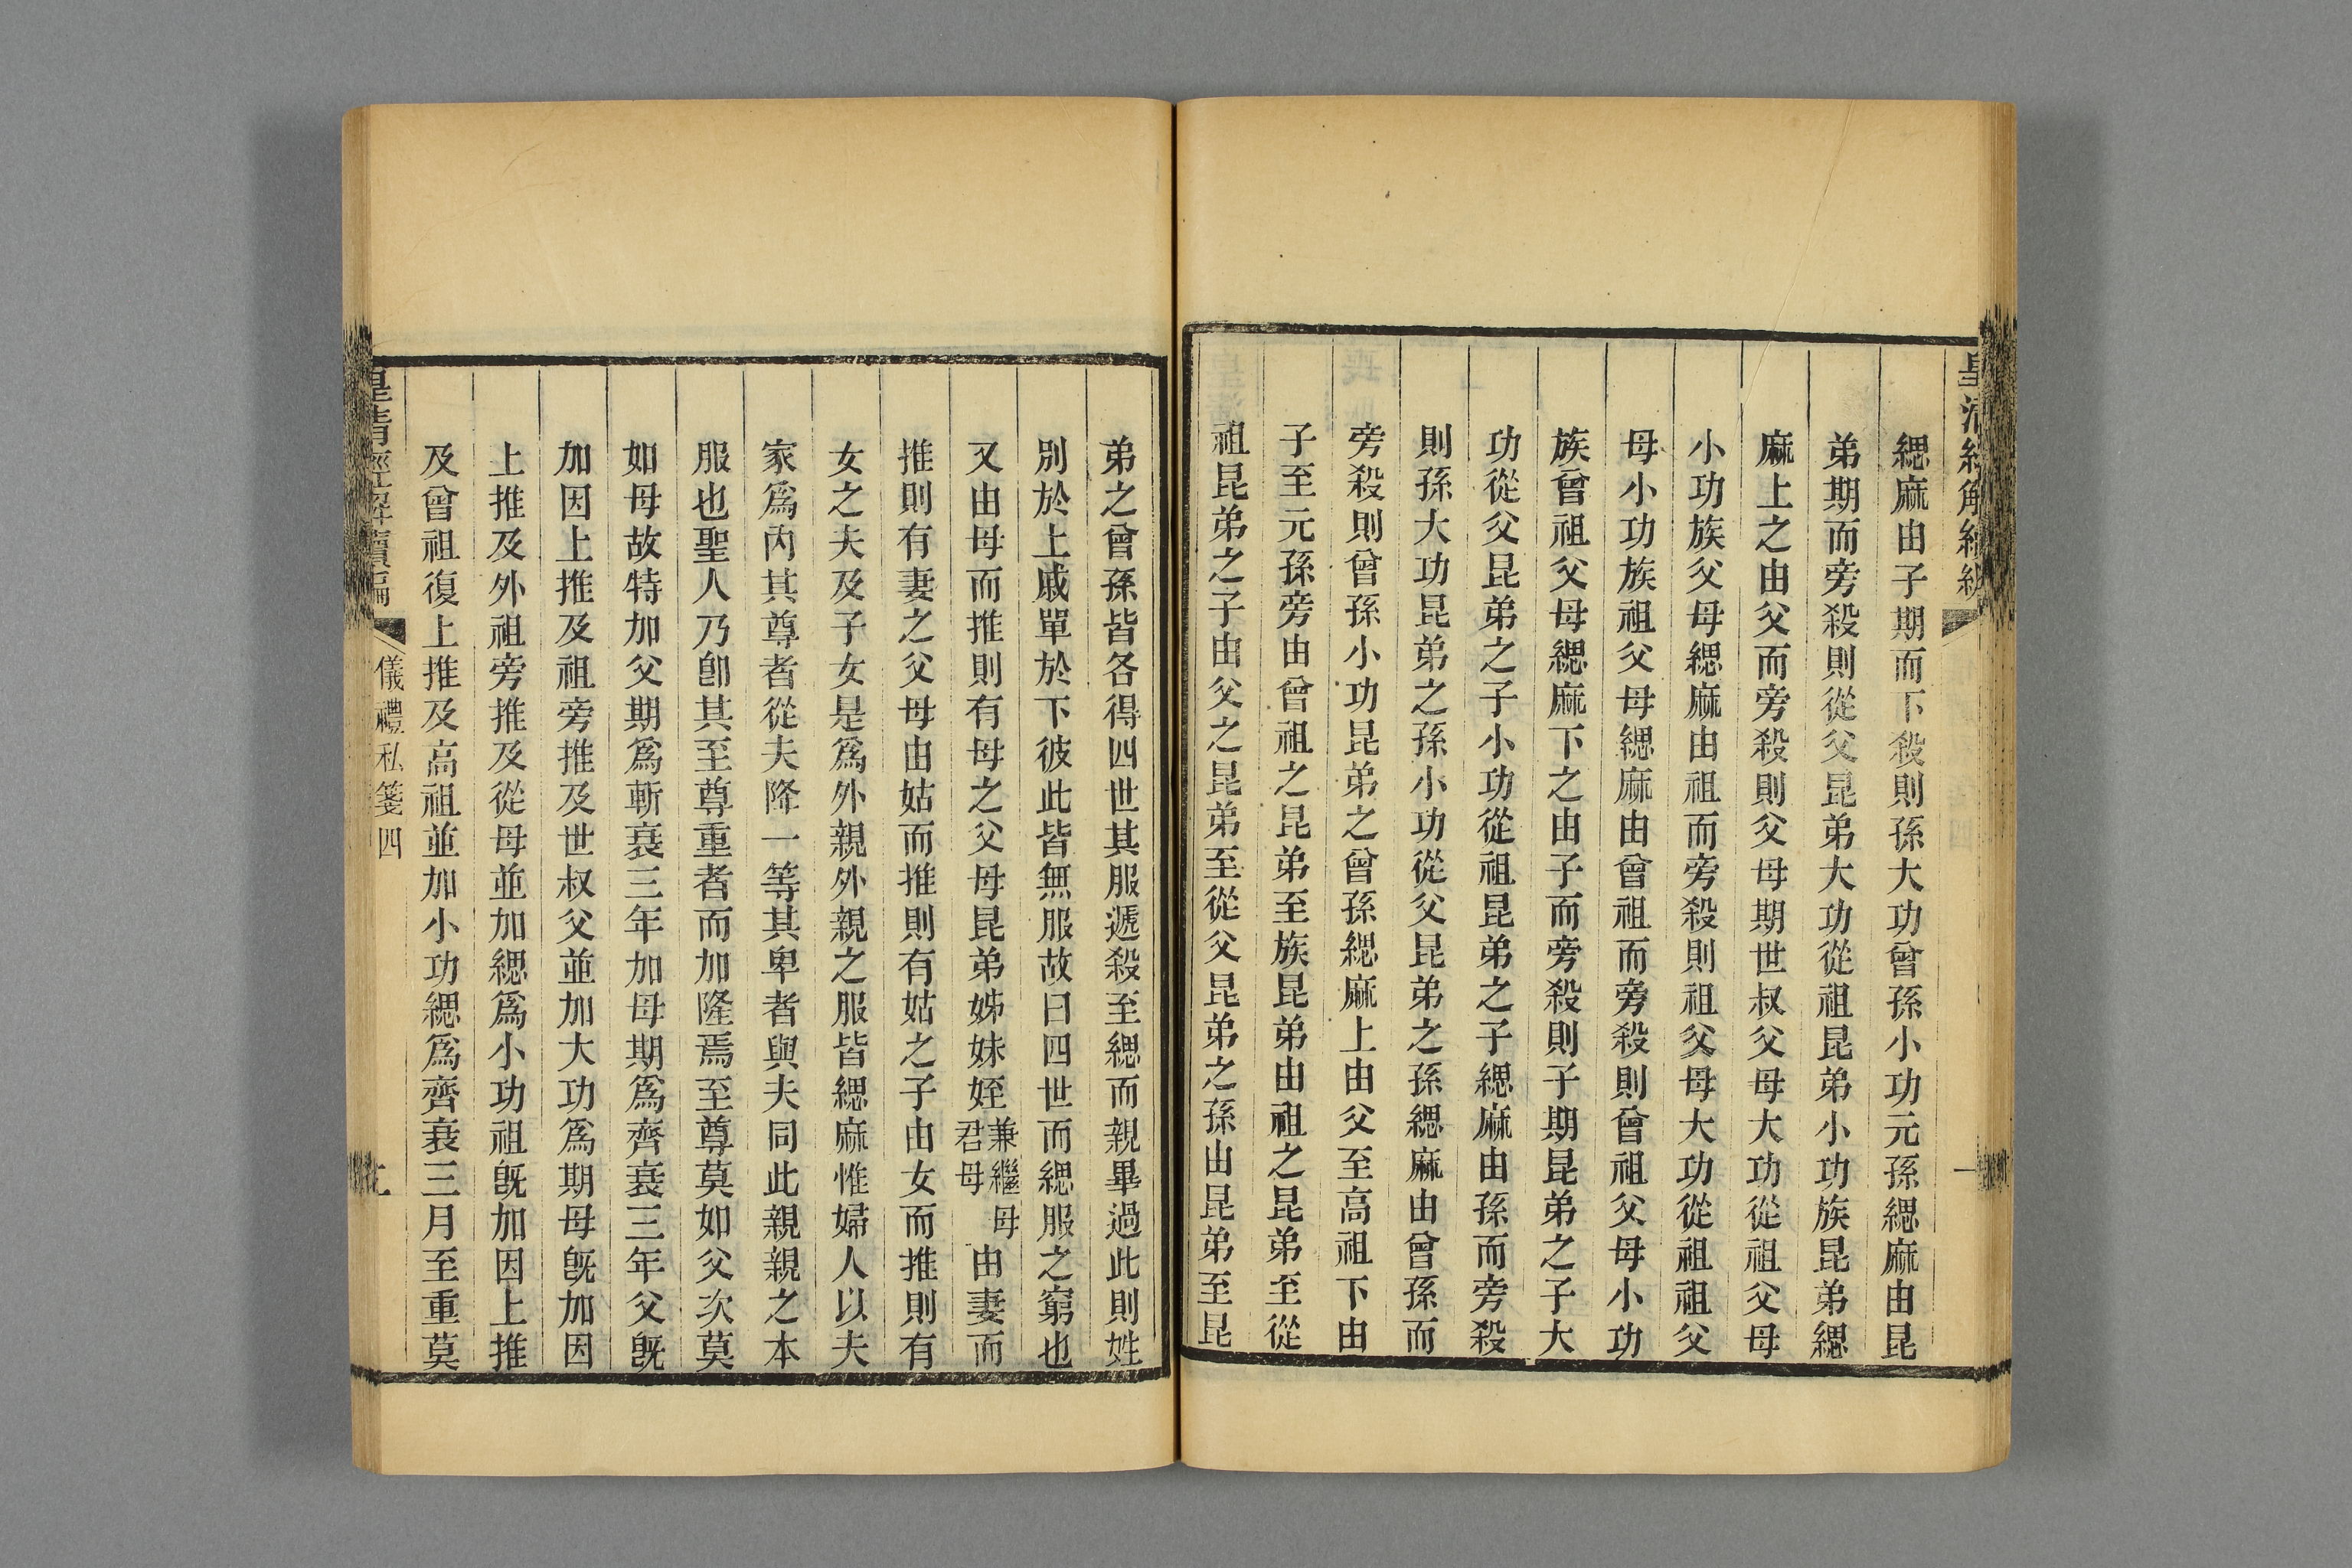 皇清經解續編
緦麻由子期而下殺則孫大功曾孫小功元孫緦麻由昆
弟期而旁殺則從父昆弟大功從祖昆弟小功族昆弟緦
麻上之由父而旁殺則父母期世叔父母大功從祖父母
小功族父母緦麻由祖而旁殺則祖父母大功從祖祖父
母小功族祖父母緦麻由曾祖而旁殺則曾祖父母小功
族曾祖父母緦麻下之由子而旁殺則子期昆弟之子大
功從父昆弟之子小功從祖昆弟之子緦麻由孫而旁殺
則孫大功昆弟之孫小功從父昆弟之孫緦麻由曾孫而
旁殺則曾孫小功昆弟之曾孫緦麻上由父至高祖下由
子至元孫旁由曾祖之昆弟至族昆弟由祖之昆弟至從
祖昆弟之子由父之昆弟至從父昆弟之孫由昆弟至昆
弟之曾孫皆各得四世其服遞殺至緦而親畢過此則姓
別於上戚單於下彼此皆無服故曰四世而緦服之窮也
又由母而推則有母之父母昆弟姊妹姪兼繼母君母由妻而
推則有妻之父母由姑而推則有姑之子由女而推則有
女之夫及子女是爲外親外親之服皆緦麻惟婦人以夫
家爲內其尊者從夫降一等其卑者與夫同此親親之本
服也聖人乃卽其至尊重者而加隆焉至尊莫如父次莫
如母故特加父期爲斬衰三年加母期爲齊衰三年父旣
加因上推及祖旁推及世叔父並加大功爲期母旣加因
上推及外祖旁推及從母並加緦爲小功祖旣加因上推
及曾祖復上推及高祖並加小功緦爲齊衰三月至重莫
皇清經解續編
儀禮私箋四